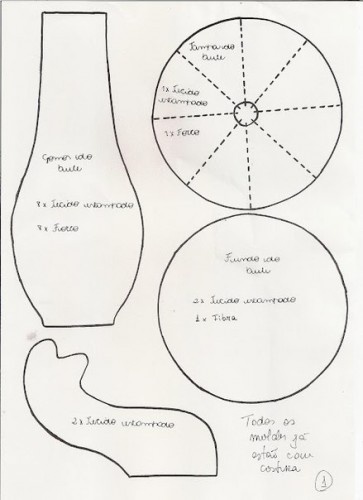 Tampa do
bule
1x Tecido
estampado
1x Forro
Gomos do
bule
Tecido estampado
Forro
Fundo do
bule
2x Tecido estampado
1x Fibra
2x Tecido estampado
Todos os
moldes já
estão com
costura
1